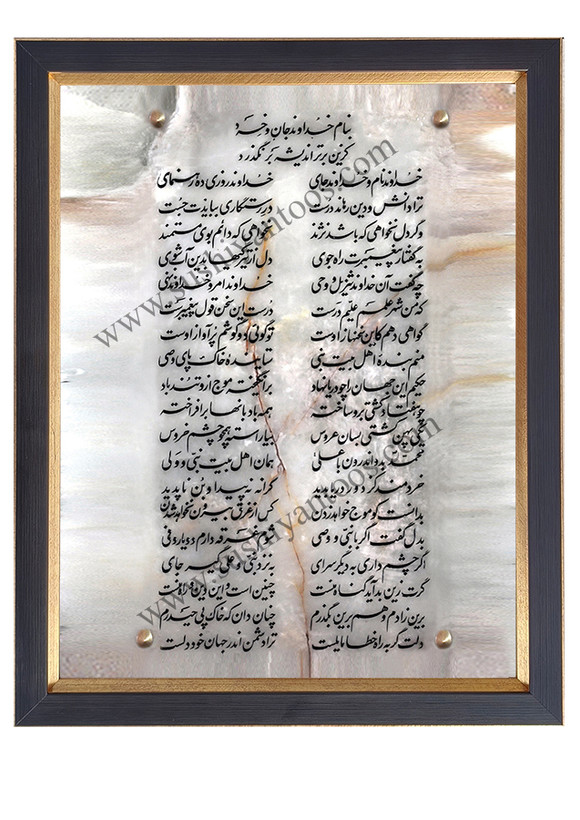 بنام خداوند جان و خرد
کزین برتر اندیشه برنگذرد
خداوند نام و خداوند جای خداوند روزی ده رهنمای
ترا دانش و دین رهاند درست در رستگاری ببایدت جست
وگر دل نخواهی که باشد نژند نخواهی که دائم بوی مستمند
به گفتار پیغمبرت راه جوی دل از تیرگیها بدین آب شوی
چه گفت آن خداوند تنزیل و وحی خداوند امر و خداوند نهی
که من شهر علمم علیم درست درست این سخن قول پیغمبرست
گواهی دهم کاین سخنها ز اوست تو گوئی دو گوشم پر آواز اوست
منم بنده اهل بیت نبی ستاینده خاک پای وصی
حکیم این جهان را چو دریا نهاد برانگیخته موج ازو تندباد
چو هفتاد کشتی برو ساخته همه بادبانها برافراخته
یکی پهن کشتی بسان عروس بیاراسته همچو چشم خروس
محمد بدو اندرون با علی همان اهل بیت نبی و ولی
خردمند کز دور دریا بدید کرانه نه پیدا و بن ناپدید
بدانست کو موج خواهد زدن کس از غرق بیرون نخواهد شدن
بدل گفت اگر با نبی و وصی شوم غرقه دارم دو یار وفی
اگر چشم داری به دیگر سرای بنزد نبی و علی گیر جای
گرت زین بد آید گناه منست چنین است و این دین و راه منست
برین زادم و هم برین بگذرم چنان دان که خاک پی حیدرم
دلت گر به راه خطا مایلست ترا دشمن اندر جهان خود دلست
www.sushiyantoos.com
www.sushiyantoos.com